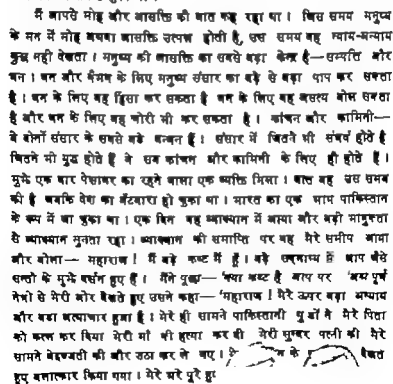 मैं आपसे मोह और आसक्ति की बात कह रहा था। जिस समय मनुष्य
के मन में मोह अथवा आसक्ति उत्पन्न होती है, उस समय वह न्याय-अन्याय
कुछ नहीं देखता। मनुष्य की आसक्ति का सबसे बड़ा केन्द्र है—सम्पत्ति और
धन। धन और वैभव के लिए मनुष्य संसार का बड़े से बड़ा पाप कर सकता
है। धन के लिए वह हिंसा कर सकता है धन के लिए वह असत्य बोल सकता
है और धन के लिए वह चोरी भी कर सकता है। कांचन और कामिनी—
ये दोनों संसार के सबसे बड़े बन्धन हैं। संसार में जितने भी संघर्ष होते हैं
जितने भी युद्ध होते हैं वे सब कांचन और कामिनी के लिए ही होते हैं।
मुझे एक बार पेसावर का रहने वाला एक व्यक्ति मिला। बात यह उस समय
की है जबकि देश का बँटवारा हो चुका था। भारत का एक भाग पाकिस्तान
के रूप में आ चुका था। एक दिन वह व्याख्यान में आया और बड़ी भावुकता
से व्याख्यान सुनता रहा। व्याख्यान की समाप्ति पर वह मेरे समीप आया
और बोला— महाराज! मैं बड़े कष्ट में हूँ। बड़े सद्भाग्य से आप जैसे
सन्तों के मुझे दर्शन हुए हैं। मैंने पूछा— 'क्या कष्ट है आप पर' अश्रु पूर्ण
नेत्रों से मेरी ओर देखते हुए उसने कहा— 'महाराज! मेरे ऊपर बड़ा अन्याय
और बड़ा अत्याचार हुआ है। मेरे ही सामने पाकिस्तानी गुंडों ने मेरे पिता
को कत्ल कर दिया मेरी माँ की हत्या कर दी मेरी सुन्दर पत्नी की मेरे
सामने बेइज्जती की और उठा कर ले गए। के देखते
हुए बलात्कार किया गया। मेरे भरे पूरे